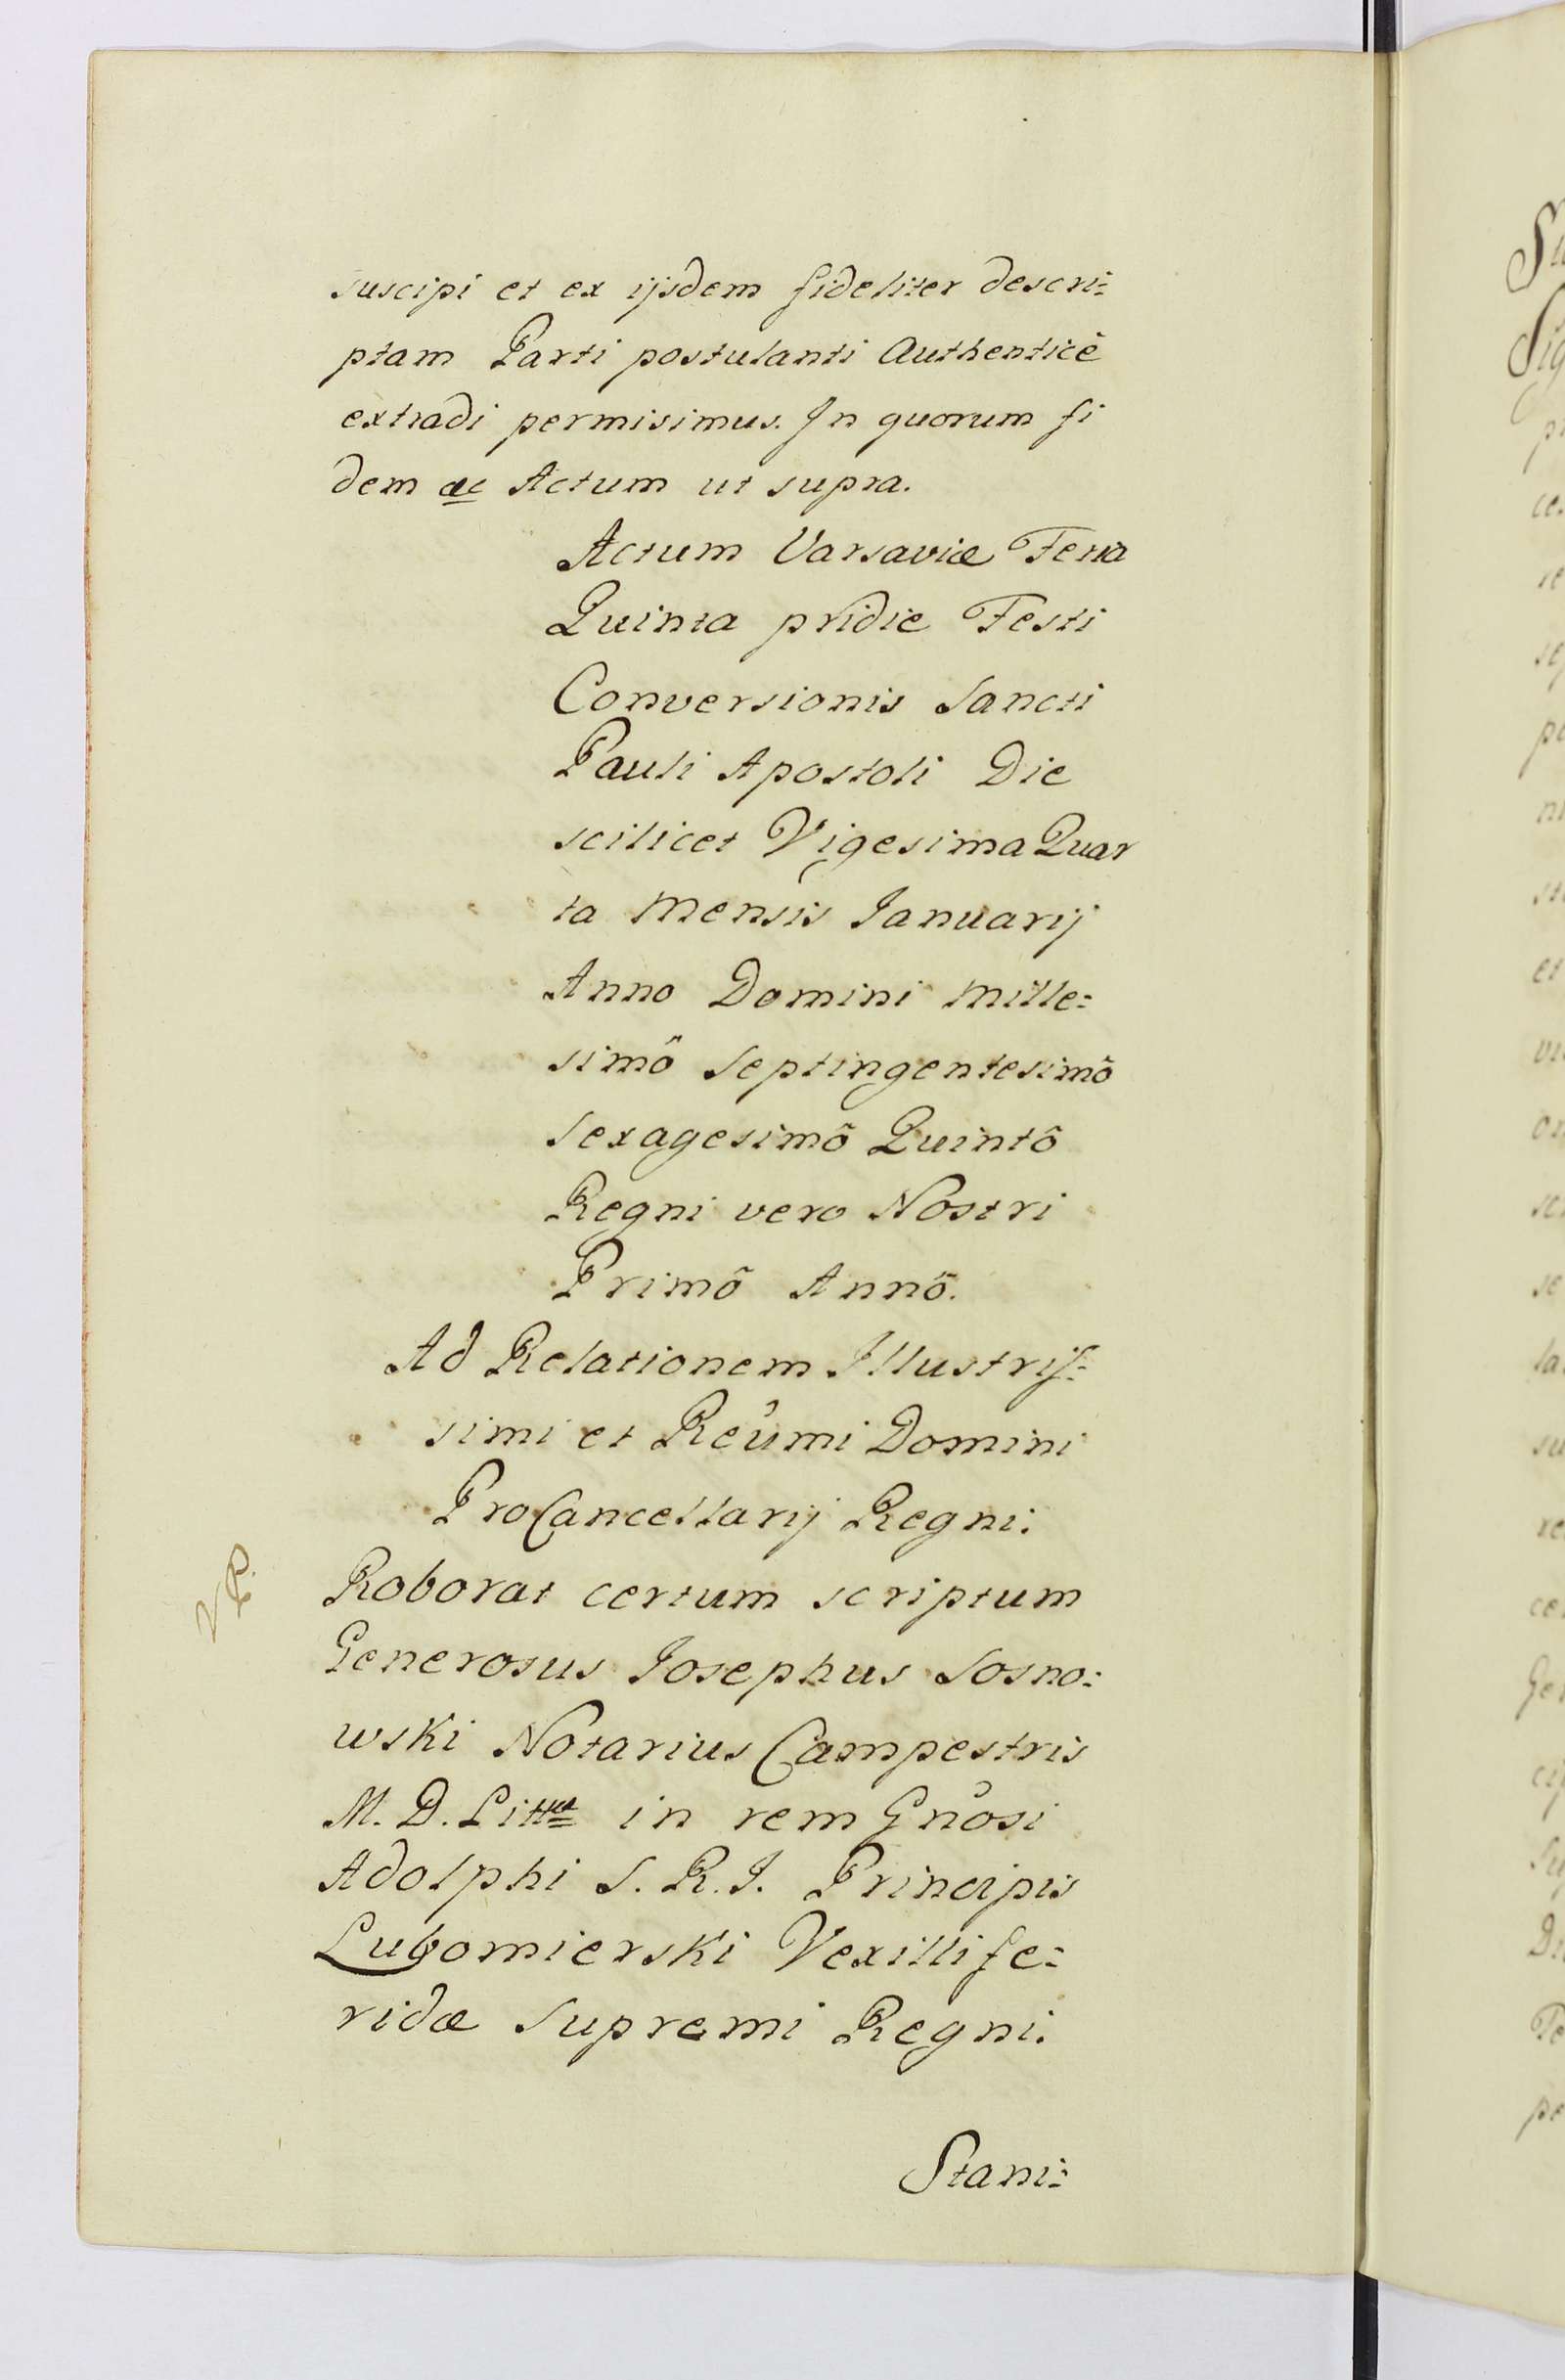 suscipi et ex ijsdem fideliter descri=
ptam Parti postulanti Authenticè
extradi permisimus. In quorum fi
dem ac Actum ut supra.
Actum Varsaviæ Feria
Quinta pridie Festi
Conversionis Sancti
Pauli Apostoli Die
scilicet Vigesima Quar
ta Mensis Januarij
Anno Domini Mille=
simô Septingentesimô
Sexagesimô Quintô
Regni vero Nostri
Primô Annô.
Ad Relationem Illustris=
simi et Reūmi Domini
ProCancellarij Regni.
VP.
Roborat certum scriptum
Generosus Josephus Sosno=
wski Notarius Campestris
M. D. Litt in rem Gnōsi
Adolphi S. R. I. Principis
Lubomierski Vexillife=
ridæ Supremi Regni.
Stani=